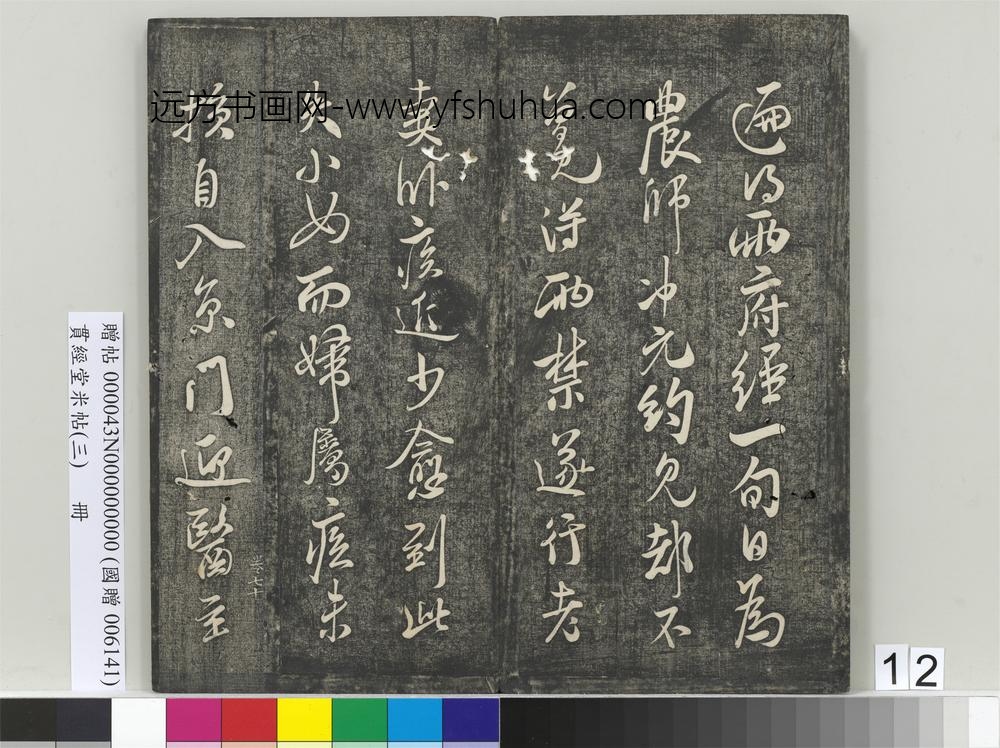 远方书画网-www.yfshuhua.com
遍兩府經一旬日為
農師冲元約見却不
得兩禁遂行老
妻臥疾近少愈到此
失小女而婦屬疾未
損自入京門迎醫至
七十
贈帖 000043N000000000 (國贈 006141)
貫經堂米帖(三) 冊
12